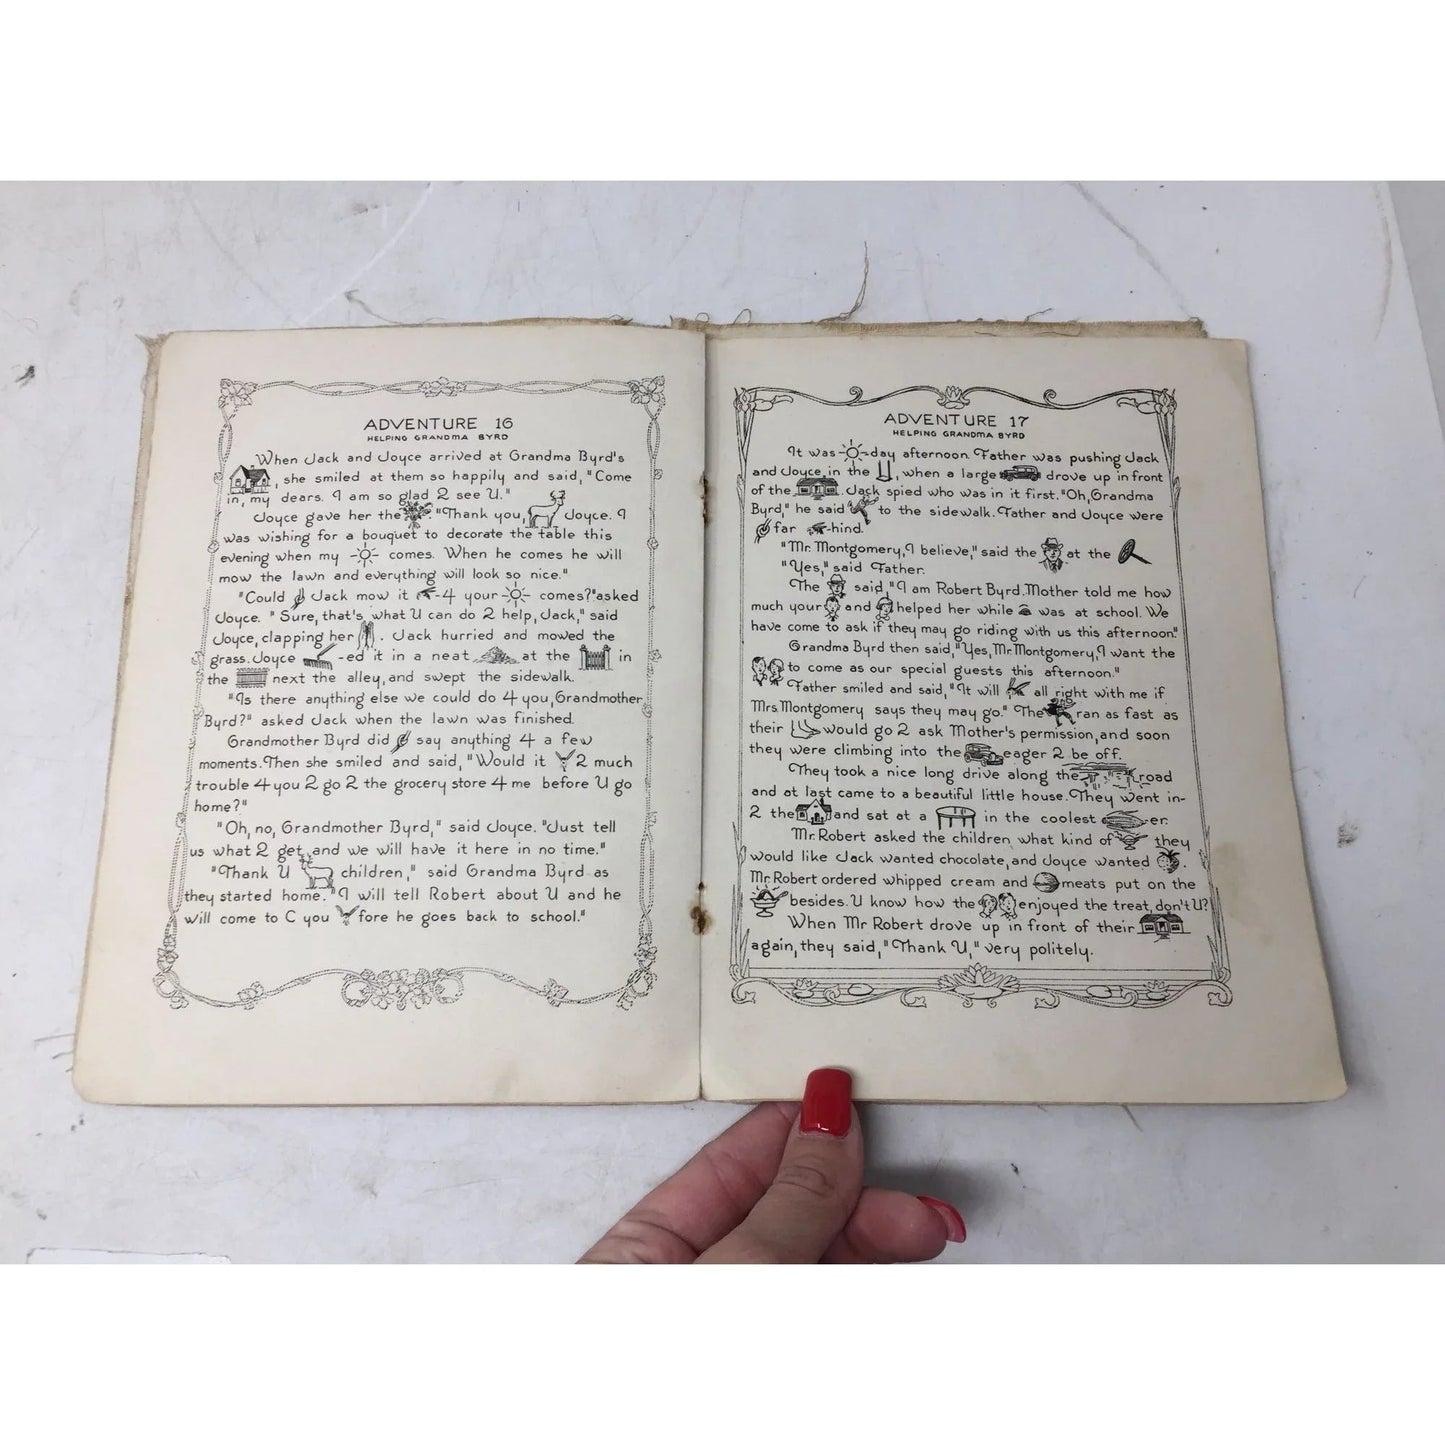 ADVENTURE 16
HELPING GRANDMA BYRD
When Jack and Joyce arrived at Grandma Byrd's
, she smiled at them so happily and said, "Come
in, my dears. I am so glad 2 see U."
Joyce gave her the . "Thank you, Joyce. I
was wishing for a bouquet to decorate the table this
evening when my comes. When he comes he will
mow the lawn and everything will look so nice."
"Could Jack mow it -4 your comes?" asked
Joyce. "Sure, that's what U can do 2 help, Jack," said
Joyce, clapping her . Jack hurried and mowed the
grass. Joyce -ed it in a neat at the in
the next the alley, and swept the sidewalk.
"Is there anything else we could do 4 you, Grandmother
Byrd?" asked Jack when the lawn was finished.
Grandmother Byrd did say anything 4 a few
moments. Then she smiled and said, "Would it 2 much
trouble 4 you 2 go 2 the grocery store 4 me before U go
home?"
"Oh, no, Grandmother Byrd," said Joyce. "Just tell
us what 2 get, and we will have it here in no time."
"Thank U children," said Grandma Byrd as
they started home. "I will tell Robert about U and he
will come to C you fore he goes back to school."
ADVENTURE 17
HELPING GRANDMA BYRD
It was -day afternoon. Father was pushing Jack
and Joyce in the , when a large drove up in front
of the . Jack spied who was in it first. "Oh, Grandma
Byrd," he said to the sidewalk. Father and Joyce were
far -hind.
"Mr. Montgomery, I believe," said the at the
"Yes," said Father.
The said, "I am Robert Byrd. Mother told me how
much your and helped her while was at school. We
have come to ask if they may go riding with us this afternoon."
Grandma Byrd then said, "Yes, Mr. Montgomery, I want the
to come as our special guests this afternoon."
Father smiled and said, "It will all right with me if
Mrs. Montgomery says they may go." The ran as fast as
their would go 2 ask Mother's permission, and soon
they were climbing into the eager 2 be off.
They took a nice long drive along the road
and at last came to a beautiful little house. They went in-
2 the and sat at a in the coolest -er.
Mr. Robert asked the children what kind of they
would like Jack wanted chocolate, and Joyce wanted .
Mr. Robert ordered whipped cream and meats put on the
besides. U know how the enjoyed the treat, don't U?
When Mr Robert drove up in front of their
again, they said, "Thank U," very politely.